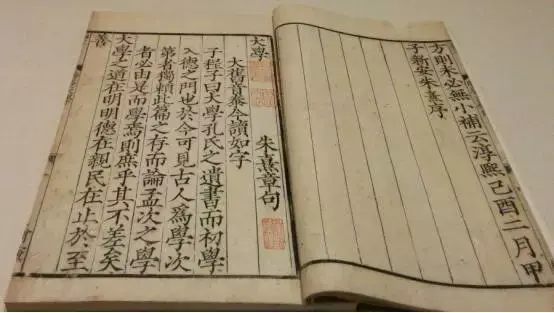 方則未必無小補云淳熙己酉二月甲
子新安朱熹序
大學　朱熹章句
大舊音泰今讀如字
子程子曰大學孔氏之遺書而初學
入德之門也於今可見古人為學次
第者獨賴此篇之存而論孟次之學
者必由是而學焉則庶乎其不差矣
大學之道在明明德在親民在止於至
善